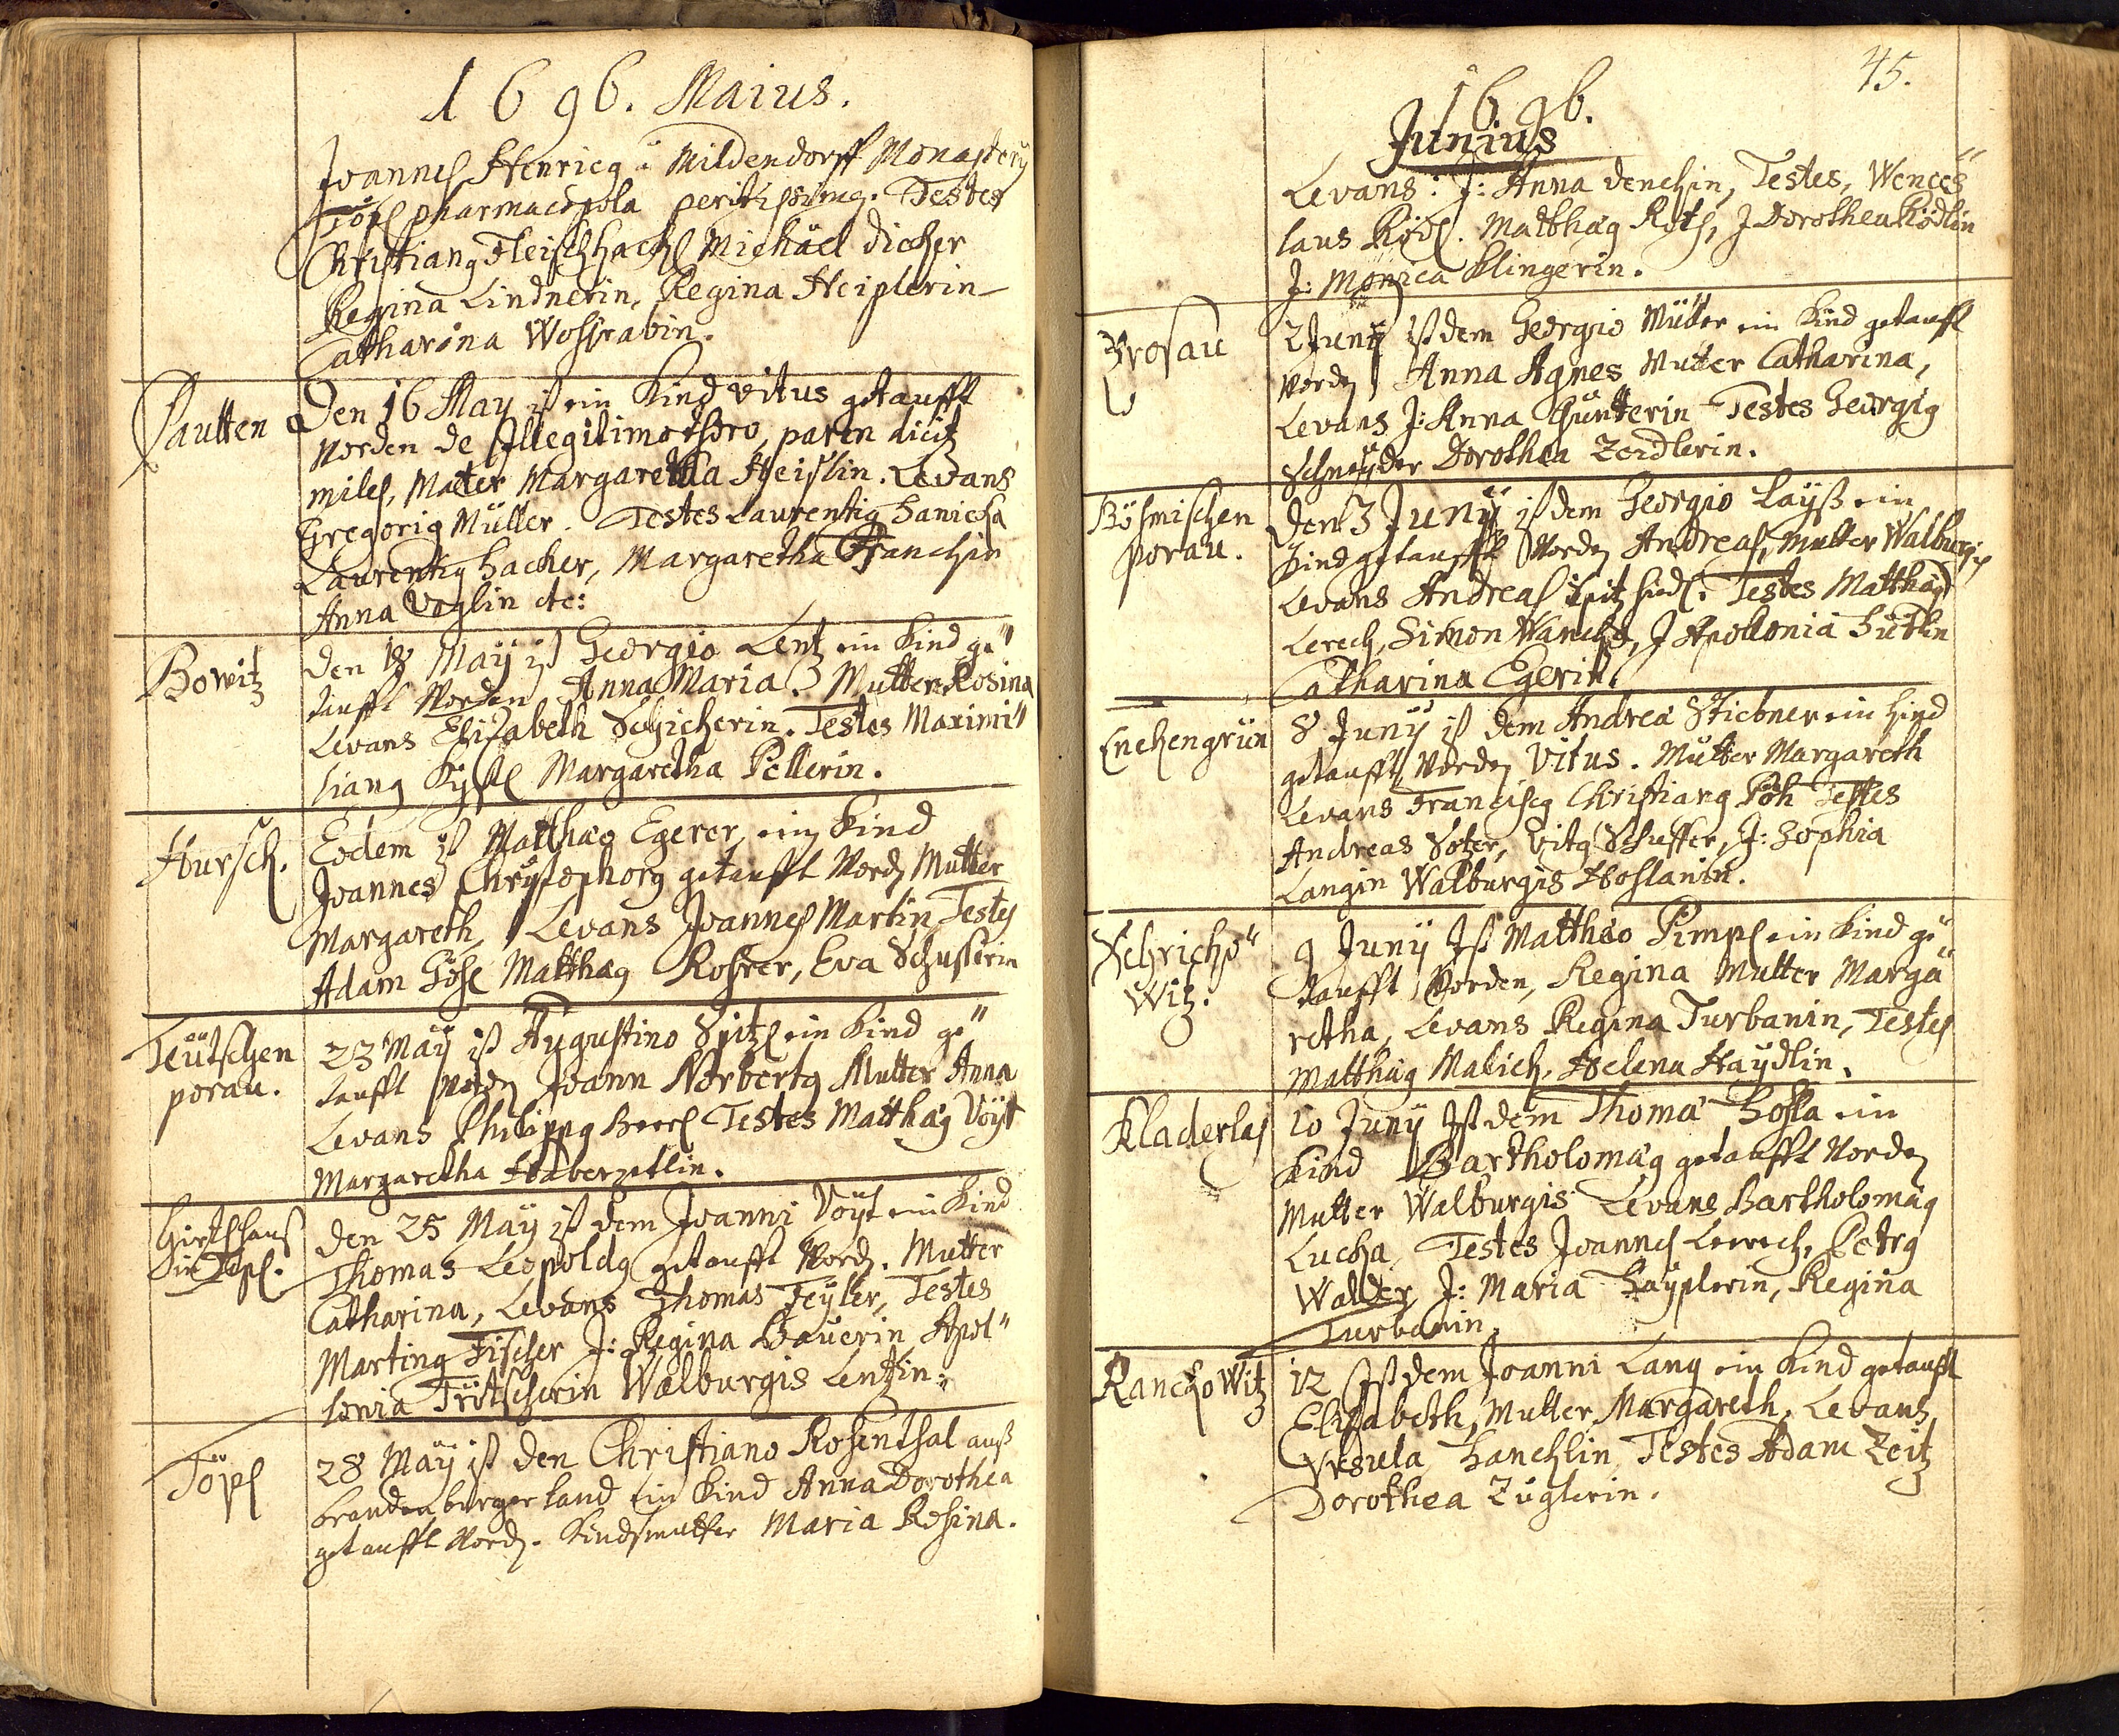 1696. Maius.
Joannes Henricq à Mildendorff Monastery
Töpl pharmacopola peritissimq. Testes
Christianq Fleischhackl Michäel dicker
Regina Lindnerin, Regina Heiplerin
Catharina Wohlrabin.
Pautten
Den 16 May ist ein Kind Vitus getaufft
worden de Illegitimo thoro, paren dicitz
miles, Mater Margaretha Heislin. Levans
Gregoriq Müller. Testes Laurentiq Hanicka
Laurentiq Hacker, Margaretha Franckin
Anna Voglin etc:
Bowitz
den 18 Maÿ ist Georgio Lentz ein Kind ge"
taufft worden Anna Maria. Mutter Rosina
Levans Elisabeth Schicherin. Testes Maximi"
lianq Margaretha Pellerin.
Hursch.
Eodem ist Matthæo Egerer, ein Kind
Joannes Chrystophorq getaufft word Mutter
Margareth, Levans Joannes Martin, Testes
Adam Göhl Matthæq Rohrer, Eva Schusterin
Teütschen
porau.
23 Maÿ ist Augustino Spitzl ein Kind ge"
taufft worden Joann Norbertq Mutter Anna
Levans Philippq Beerl Testes Matthæq Voÿt
Margaretha Haberzetlin.
Hirthhaus
bei Tepl.
den 25 Maÿ ist dem Joanni Voÿt ein Kind
Thomas Leopoldq getaufft word. Mutter
Catharina, Levans Thomas Feÿler, Testes
Martinq Fischer J: Regina Bauerin Apol"
lonia Trötscherin Walburgis Lentzin:
Töpl
28 Maÿ ist den Christiano Rosenthal auß
brandenburger land ein Kind Anna Dorothea
getaufft word. Kindsmutter Maria Rosina.
45.
1696.
Junius
Levans: J: Anna denckin, Testes, Wences"
laus Ködl. Matthæq Rots, J Dorothea Ködlin
J: Monica Klingerin.
Prosau
2 Juny ist dem Georgio Müller ein Kind getaufft
worden Anna Agnes Mutter Catharina,
Levans J: Anna Günterin Testes Georgiq
Schneÿder Dorothea Zeidlerin.
Böhmischen
porau.
den 3 Junÿ ist dem Georgio Laÿß ein
Kind getaufft worden Andreas, Mutter Walburgis
Levans Andreas Testes Matthæq
Lerech, Simon Wancka, J Apollonia Hütlin
Catharina Egerin.
Enckengrün
8 Junÿ ist dem Andreä Stiebner ein Kind
getaufft worden Vitus. Mutter Margareth
Levans Franciscq Christianq Pöh Testes
Andreas Soter, Vitq Schuster, J: Sophia
Langin Walburgis Hoslanin.
Schricko"
witz.
9 Junÿ Ist Matthæo Pimpl ein Kind ge"
taufft worden, Regina Mutter Marga"
retha, Levans Regina Turbanin, Testes
Matthæq Malich, Helena Haÿdlin.
Kladerlas
10 Junÿ Ist dem Thomä Hosla ein
Kind Bartholomæq getaufft worden
Mutter Walburgis Levans Bartholomæq
Lucka, Testes Joannes Lerrech, Petrq
Walder, J: Maria Haÿplerin, Regina
Turbanin.
Ranckowitz
12 Ist dem Joanni Lang ein Kind getaufft
Elisabeth, Mutter Margareth, Levans
Ursula Hancklin Testes Adam Zeitz
Dorothea Züglerin.